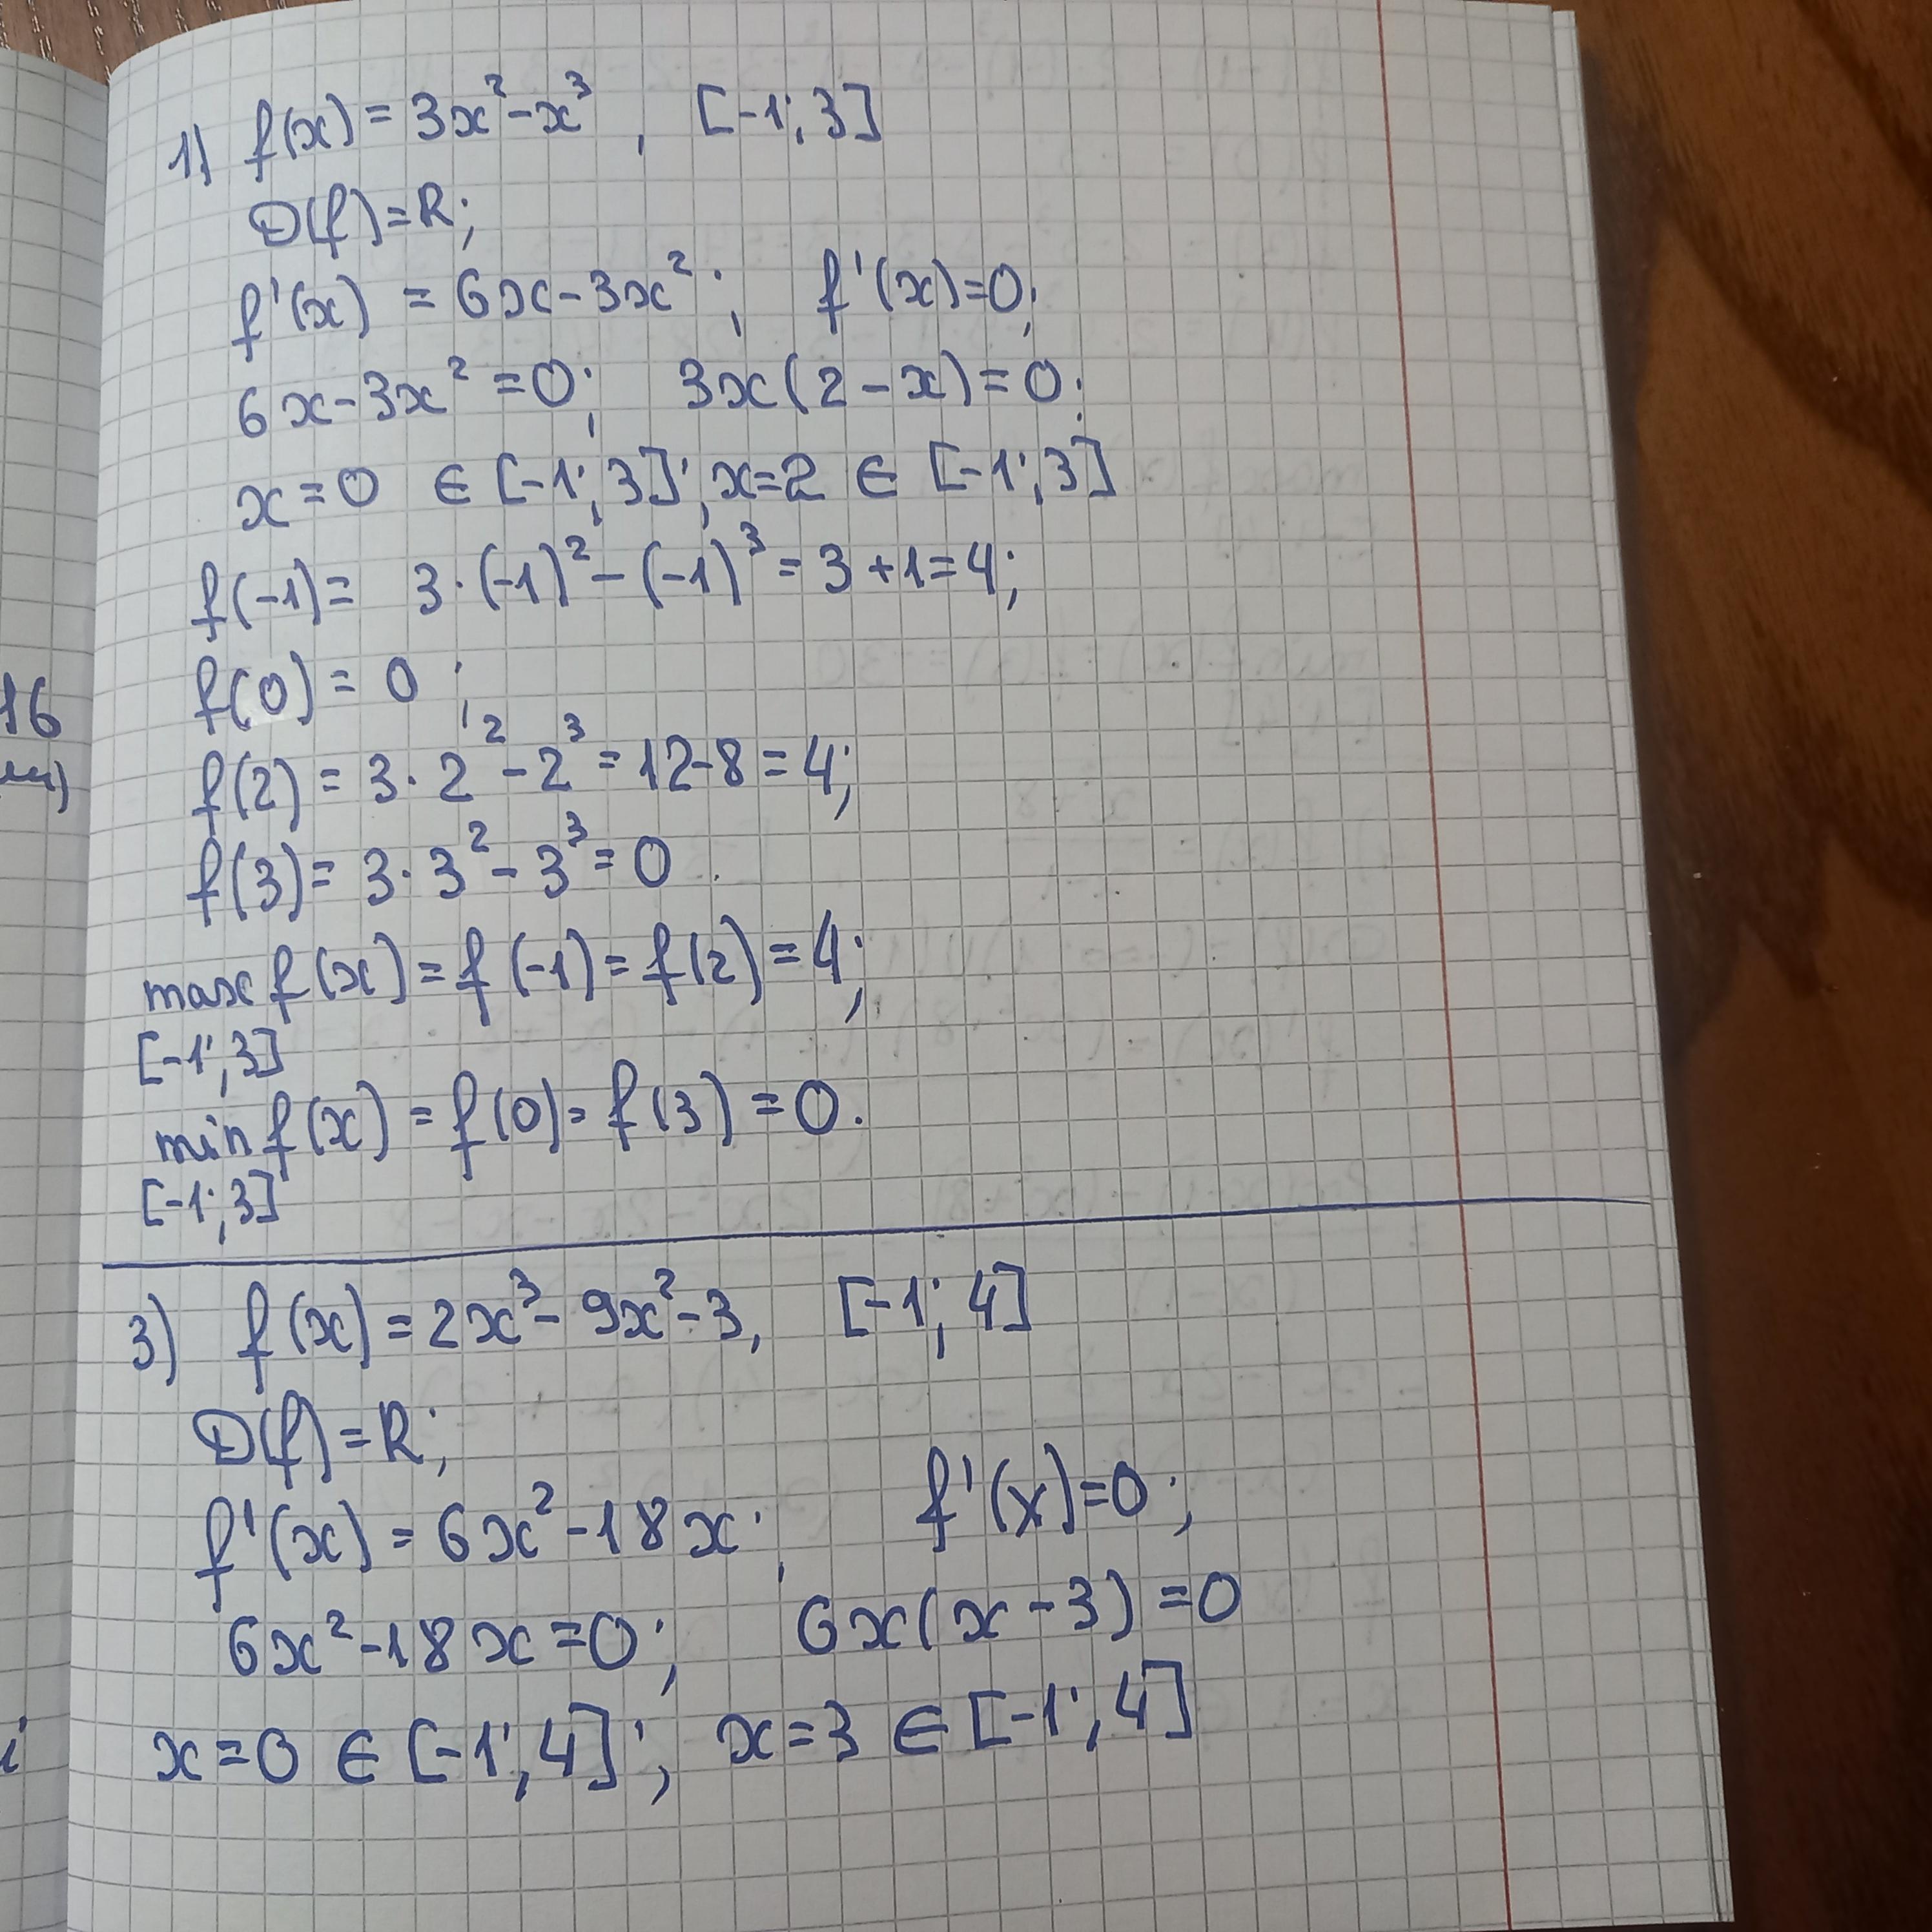 1) f(x) = 3x² - x³, [-1; 3]
D(f) = R;
f'(x) = 6x - 3x²; f'(x) = 0;
6x - 3x² = 0; 3x(2 - x) = 0;
x = 0 ∈ [-1; 3]; x = 2 ∈ [-1; 3]
f(-1) = 3·(-1)² - (-1)³ = 3 + 1 = 4;
f(0) = 0;
f(2) = 3·2² - 2³ = 12 - 8 = 4;
f(3) = 3·3² - 3³ = 0.
max f(x) = f(-1) = f(2) = 4;
[-1; 3]
min f(x) = f(0) = f(3) = 0.
[-1; 3]
3) f(x) = 2x³ - 9x² - 3, [-1; 4]
D(f) = R;
f'(x) = 6x² - 18x; f'(x) = 0;
6x² - 18x = 0; 6x(x - 3) = 0
x = 0 ∈ [-1; 4]; x = 3 ∈ [-1; 4]
16